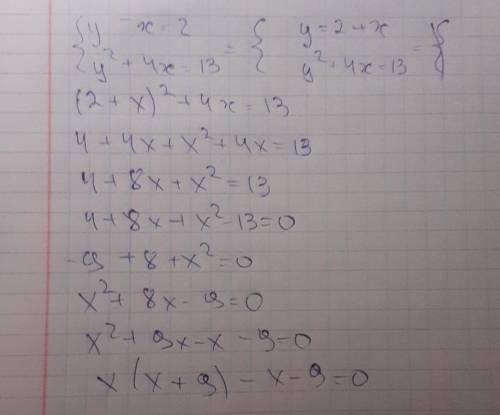 { y - x = 2 = { y = 2 + x = {
{ y² + 4x = 13 { y² + 4x = 13
(2 + x)² + 4x = 13
4 + 4x + x² + 4x = 13
4 + 8x + x² = 13
4 + 8x + x² - 13 = 0
-9 + 8 + x² = 0
x² + 8x - 9 = 0
x² + 9x - x - 9 = 0
x (x + 9) - x - 9 = 0